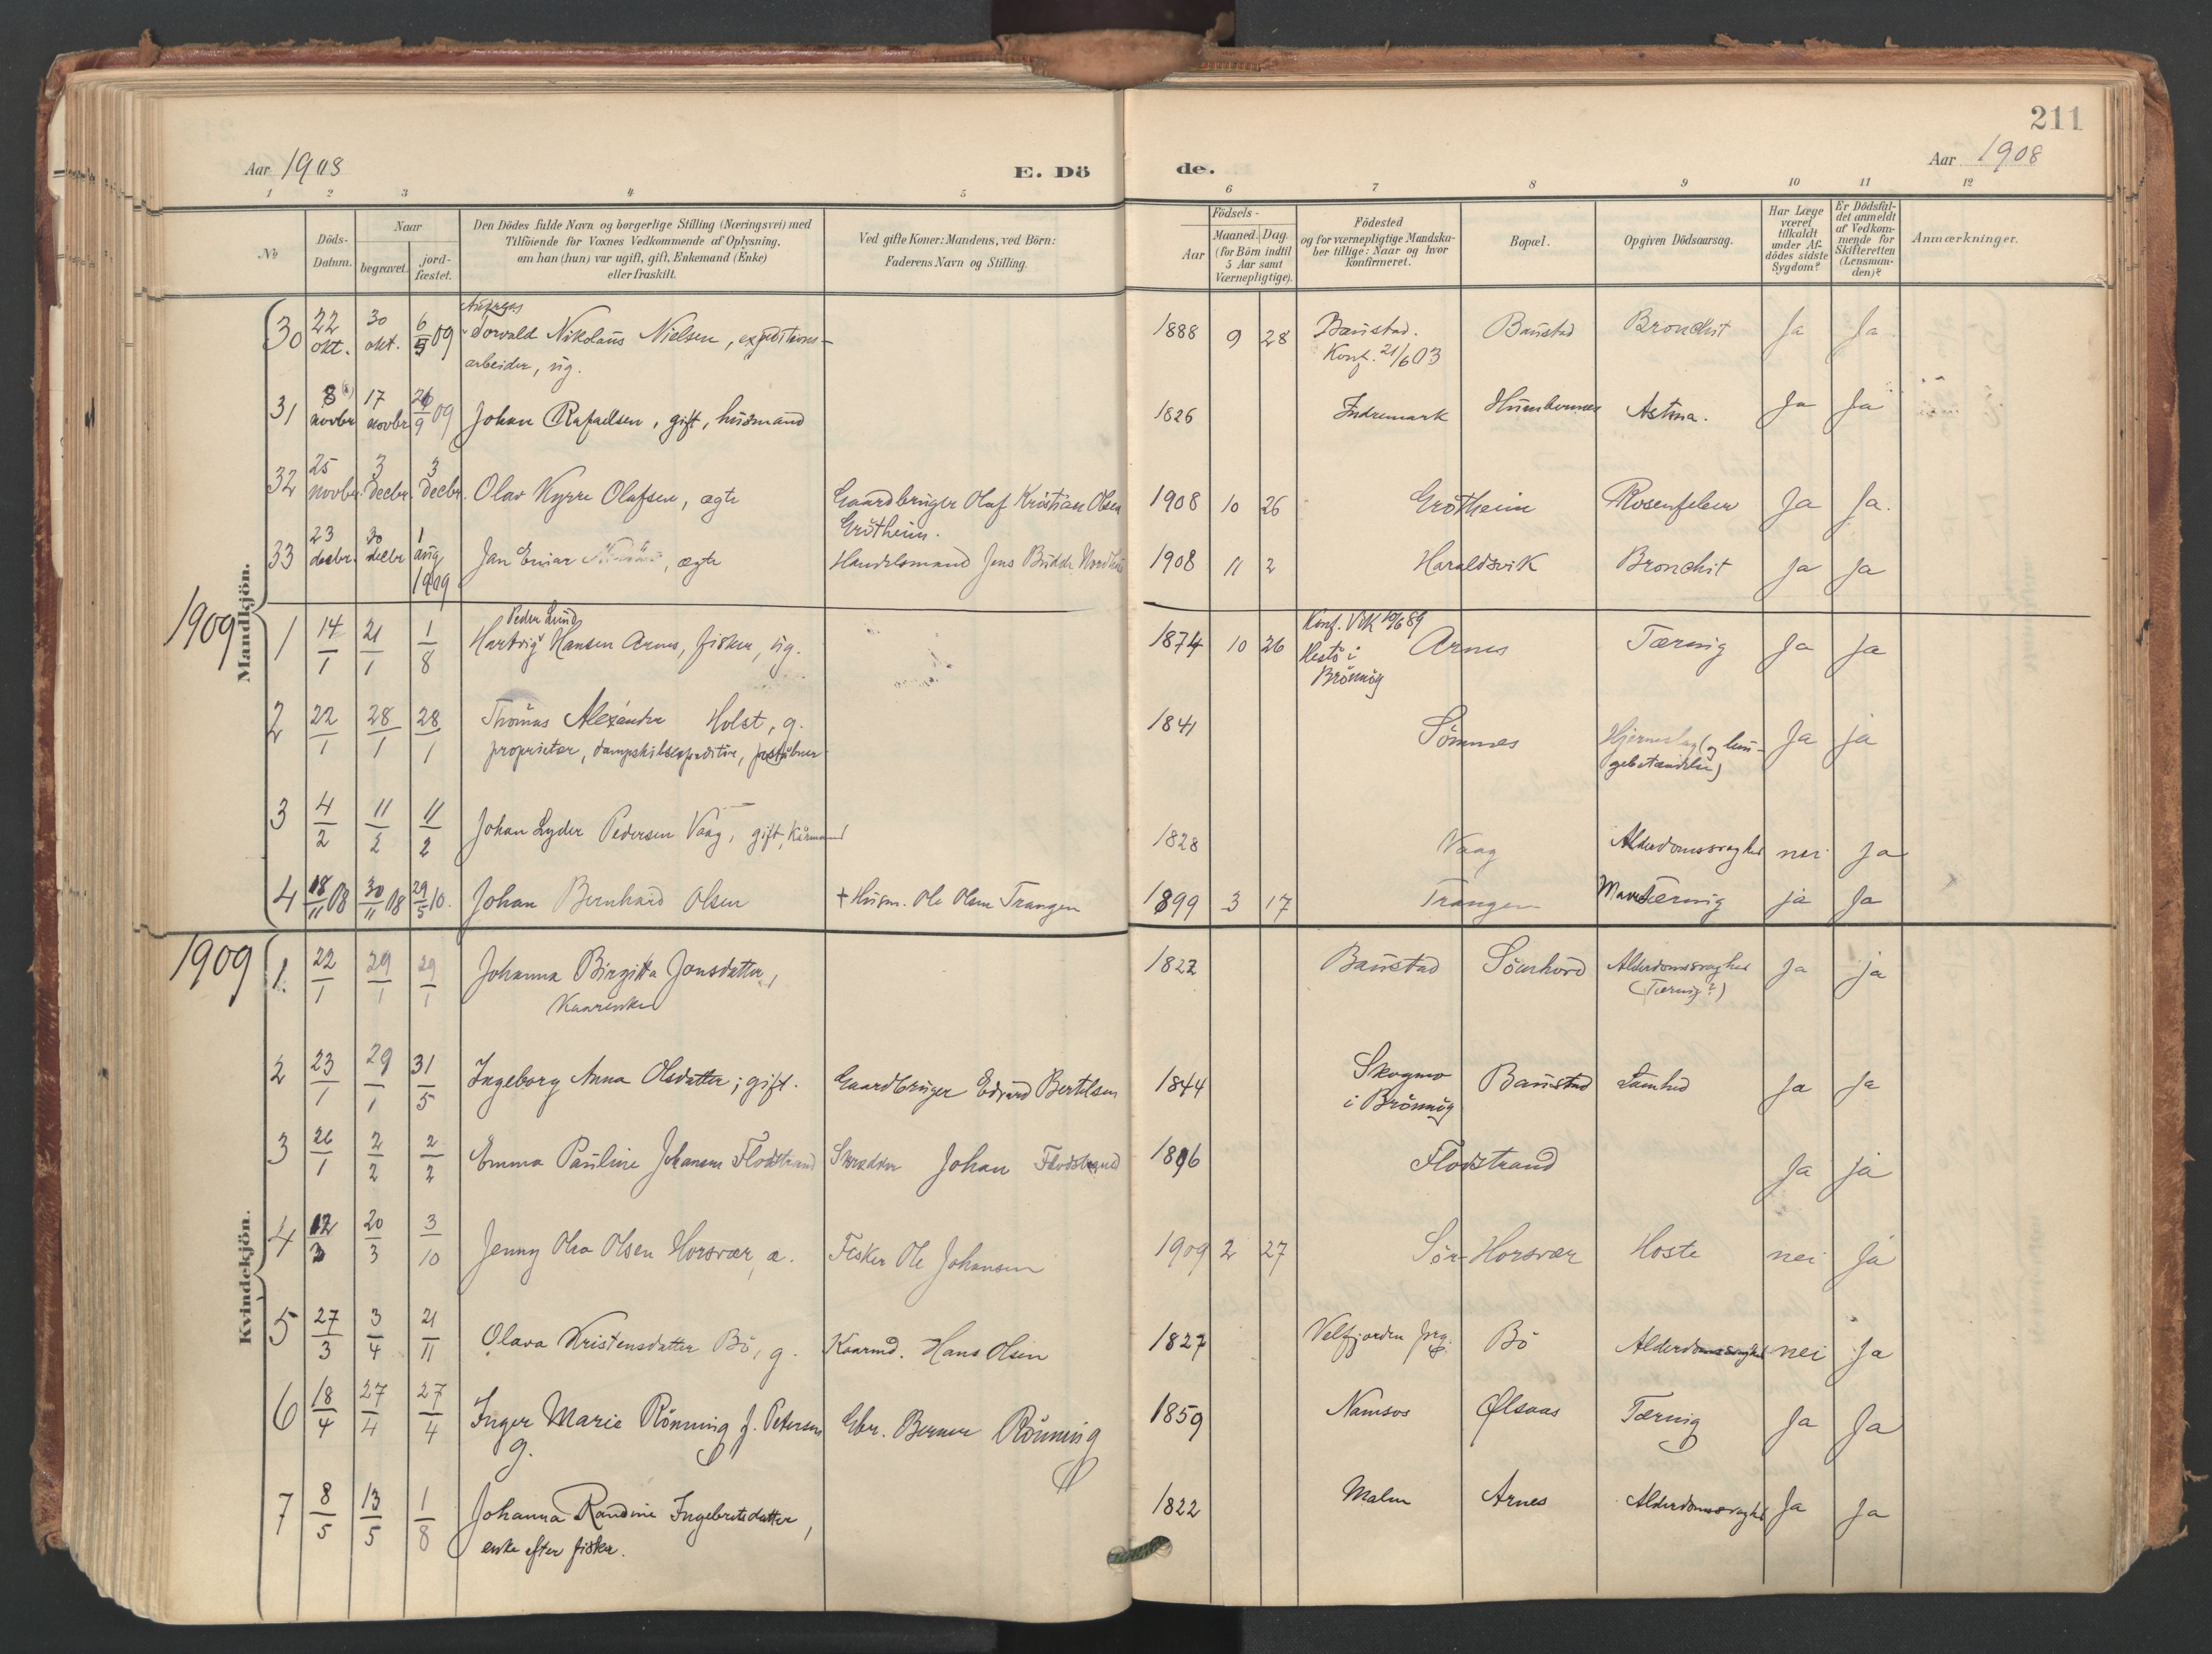 211
Aar 1908 E. Dö de. Aar 1908
1 2 3 4 5 6 7 8 9 10 11 12
No
Döds-Datum.
Naar
begravet.
jord-fæstet.
Den Dödes fulde Navn og borgerlige Stilling (Næringsvei) med
Tilföiende for Voxnes Vedkommende af Oplysning,
om han (hun) var ugift, gift, Enkemand (Enke)
eller fraskilt.
Ved gifte Koner: Mandens, ved Börn:
Faderens Navn og Stilling.
Födsels-
Aar
Maaned. Dag.
(for Börn indtil
5 Aar samt
Værnepligtige).
Födested
og for værnepligtige Mandska-
ber tillige: Naar og hvor
konfirmeret.
Bopæl.
Opgiven Dödsaarsag.
Har Læge
været
tilkaldt
under Af-
dödes sidste
Sygdom?
Er Dödsfal-
det anmeldt
af Vedkom-
mende for
Skifteretten
(Lensman-
den)?
Anmærkninger.
Mandkjön.
30 22 okt. 30 okt. 6/5 09 Torvald Nikolaus Nielsen, expeditions-
arbeider, ug.
1888 9 28 Baustad. Konf. 21/6 03 Baustad Bronchit Ja Ja
31 8 novbr 17 novbr 26/9 09 Johan Rafaelsen, gift, husmand
1826 Indremark Astma. Ja Ja
32 25 novbr. 3 decbr. 3 decbr. Olav Kyrre Olafsen, ægte Gaardbruger Olaf Kristian Olsen
Grötheim.
1908 10 26 Grötheim Rosenfeber Ja Ja.
33 23 decbr. 30 decbr 1 aug 1909 Jan Einar , ægte Handelsmand Jens
1908 11 2 Haraldsvik Bronchit Ja Ja
1909
1 14/1 21/1 1/8 Peder Lund
Hartvig Hansen Arnes, fisker, ug.
1874 10 26 Konf. Vik 89 Hestö i Brönnöy Arnes Tæring Ja Ja
2 22/1 28/1 28/1 Thomas Alexander Holst, g.
proprietær, dampskibsexpeditör, postaabner
1841 Sömnes Hjerneslag (og lun-
gebetændelse) Ja ja
3 4/2 11/2 11/2 Johan Lyder Pedersen Vaag, gift, Kårmand
1828 Vaag Alderdomssvaghed nei Ja
4 18/11 08 30/11 08 29/5 10. Johan Bernhard Olsen + Husm. Ole Olsen Trangen
1899 3 17 Trangen Tæring ja Ja
1909
Kvindekjön.
1. 22/1 29/1 29/1 Johanna Birgitta Jonsdatter,
Kaarenke
1822 Baustad Alderdomssvaghed
(Tæring?) Ja ja
2 23/1 29/1 31/5 Ingeborg Anna Olsdatter; gift. Gaardbruger Edvard Bertelsen
1844 Skogmo
i Brönnöy Baustad Lamhed Ja Ja
3 26/1 2/2 2/2 Emma Pauline Johansen Flodstrand Skrædder Johan Flodstrand
1896 Flodstrand Ja ja
4 12/3 20/3 3/10 Jenny Olea Olsen Horsvær, æ. Fisker Ole Johansen
1909 2 27 Sör-Horsvær Hoste nei Ja
5 27/3 3/4 21/11 Olava Kristensdatter Bö, g. Kaarmd. Hans Olsen
1827 Velfjorden Bö Alderdomssvaghed nei Ja
6 18/4 27/4 27/4 Inger Marie Rönning f. Petersen
g. Gbr. Berner Rönning
1859 Namsos Ølsaas Tæring Ja Ja
7 8/5 13/5 1/8 Johanna Randine Ingebretsdatter,
enke efter fisker.
1822 Malm Arnes Alderdomssvaghed Ja Ja